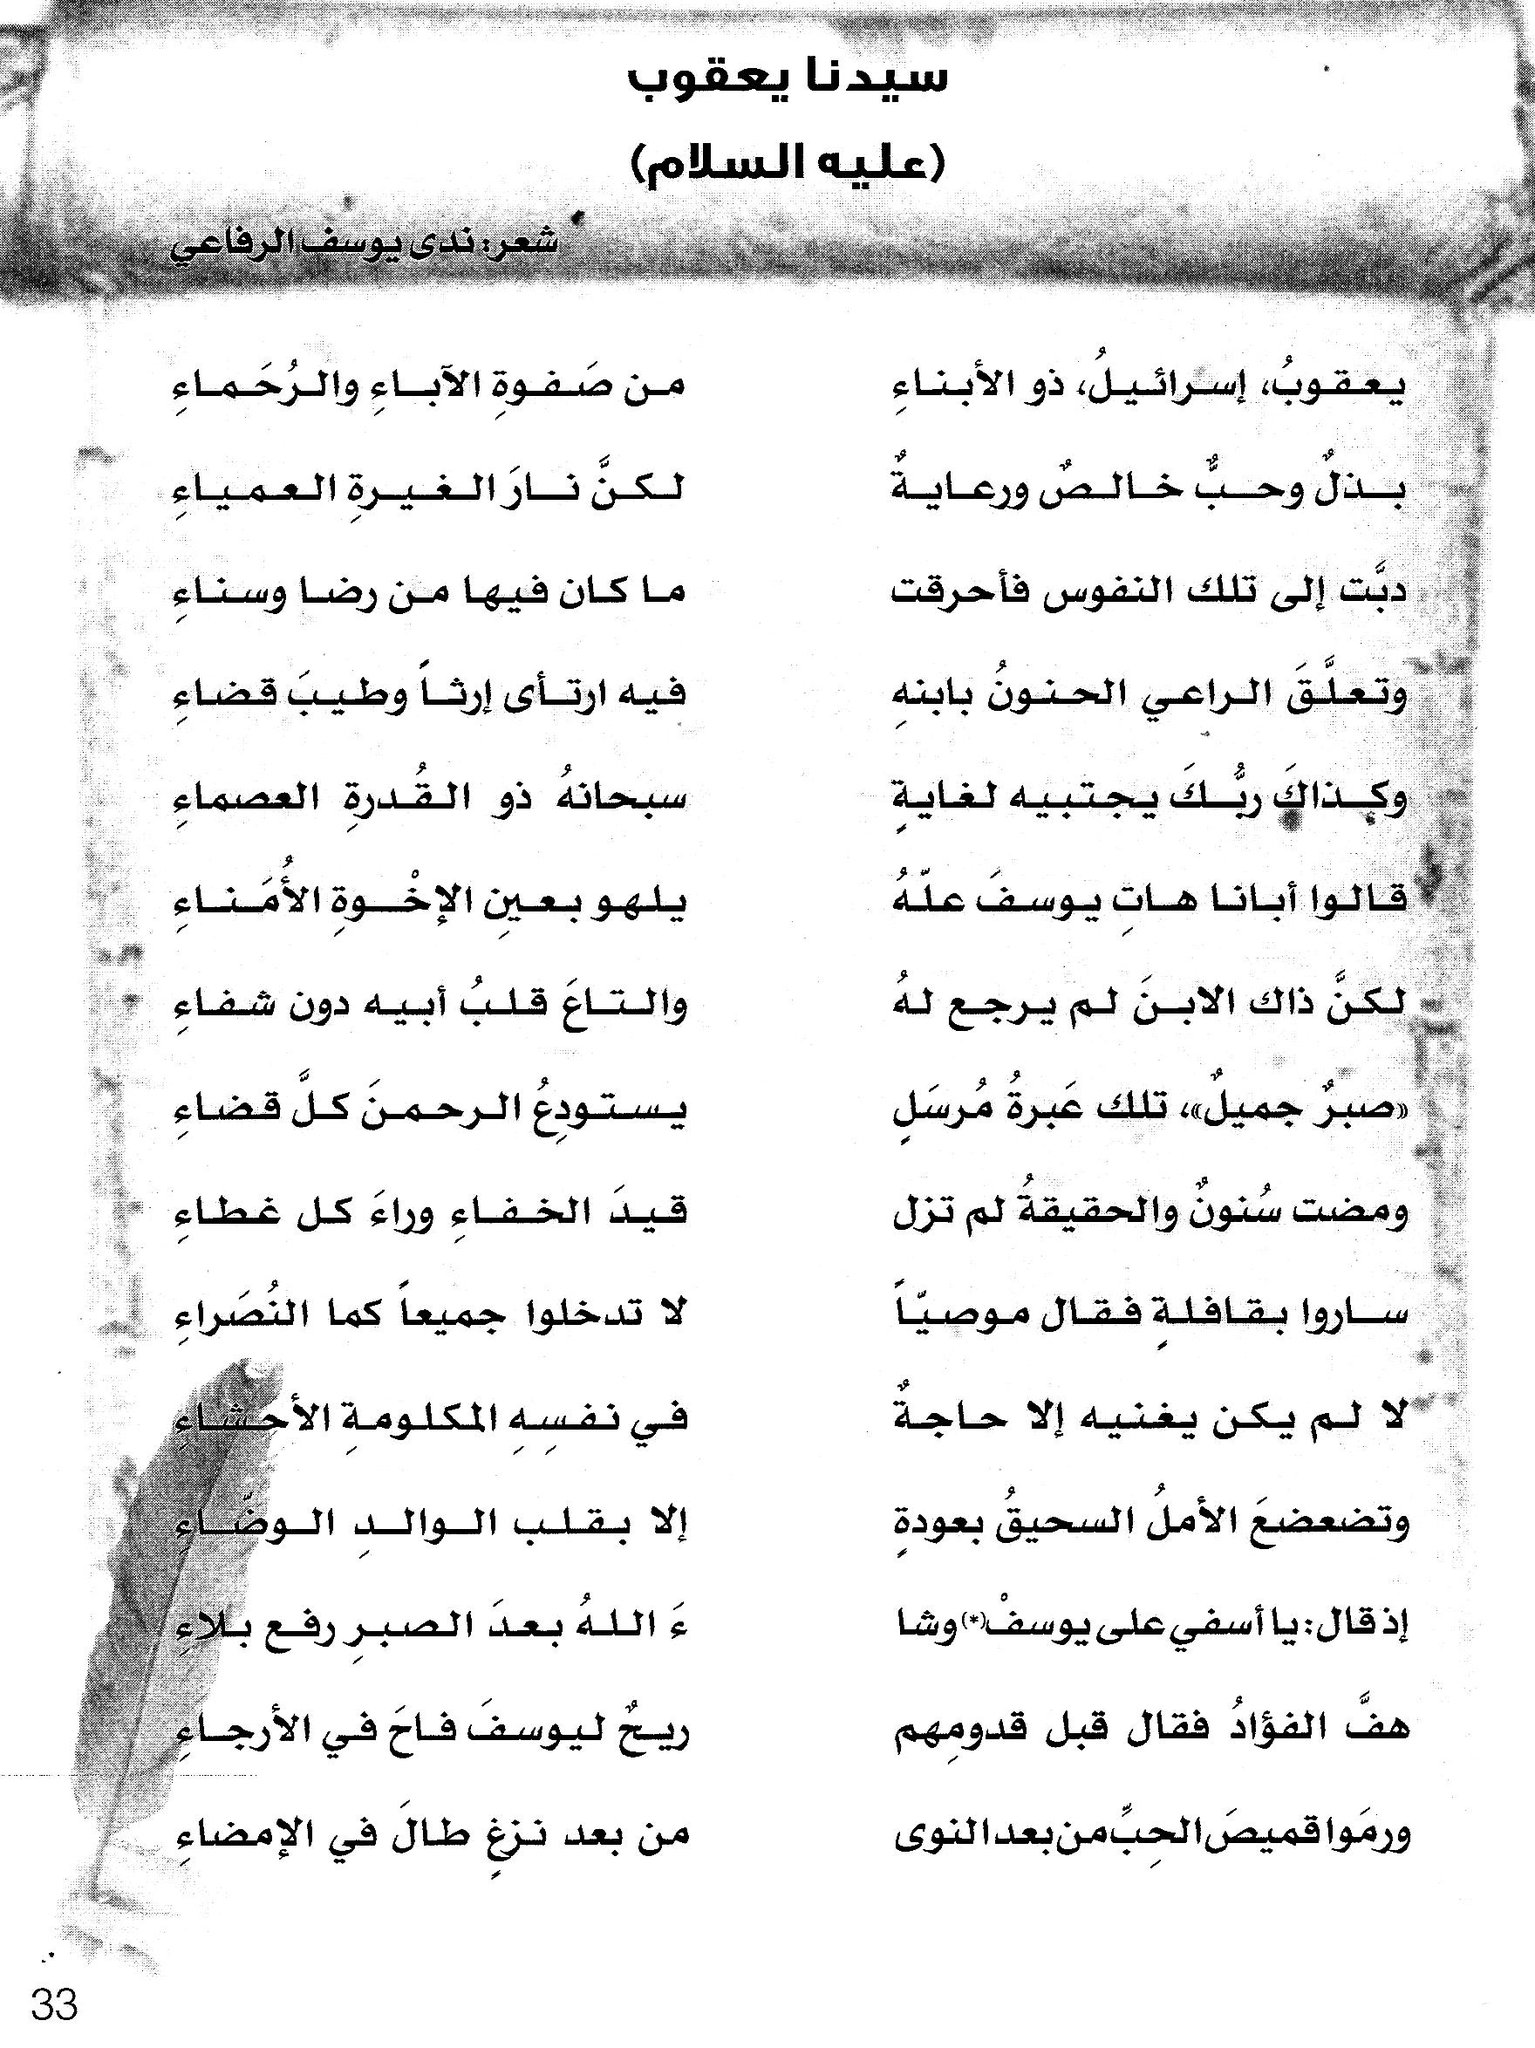 سيدنا يعقوب
(عليه السلام)
شعر: ندى يوسف الرفاعي
يعقوبُ، إسرائيلُ، ذو الأبناءِ من صَفوةِ الآباءِ والرُحَماءِ
بذلٌ وحبٌّ خالصٌ ورعايةٌ لكنَّ نارَ الغيرةِ العمياءِ
دبَّت إلى تلك النفوس فأحرقت ما كان فيها من رضا وسناءِ
وتعلَّقَ الراعي الحنونُ بابنهِ فيه ارتأى إرثاً وطيبَ قضاءِ
وكذاكَ ربُّكَ يجتبيه لغايةٍ سبحانهُ ذو القُدرةِ العصماءِ
قالوا أبانا هاتِ يوسفَ علّهُ يلهو بعينِ الإخْوةِ الأُمَناءِ
لكنَّ ذاك الابنَ لم يرجع لهُ والتاعَ قلبُ أبيه دون شفاءِ
«صبرٌ جميلٌ»، تلك عَبرةُ مُرسَلٍ يستودِعُ الرحمنَ كلَّ قضاءِ
ومضت سُنونٌ والحقيقةُ لم تزل قيدَ الخفاءِ وراءَ كل غطاءِ
ساروا بقافلةٍ فقال موصيّاً لا تدخلوا جميعاً كما النُصَراءِ
لا لم يكن يغنيه إلا حاجةٌ في نفسِهِ المكلومةِ الأحشاءِ
وتضعضعَ الأملُ السحيقُ بعودةٍ إلا بقلب الوالدِ الوضّاءِ
إذ قال: يا أسفي على يوسفْ(*) وشا ءَ اللهُ بعدَ الصبرِ رفع بلاءِ
هفَّ الفؤادُ فقال قبل قدومِهم ريحٌ ليوسفَ فاحَ في الأرجاءِ
ورمَوا قميصَ الحِبِّ من بعد النوى من بعد نزغٍ طالَ في الإمضاءِ
33